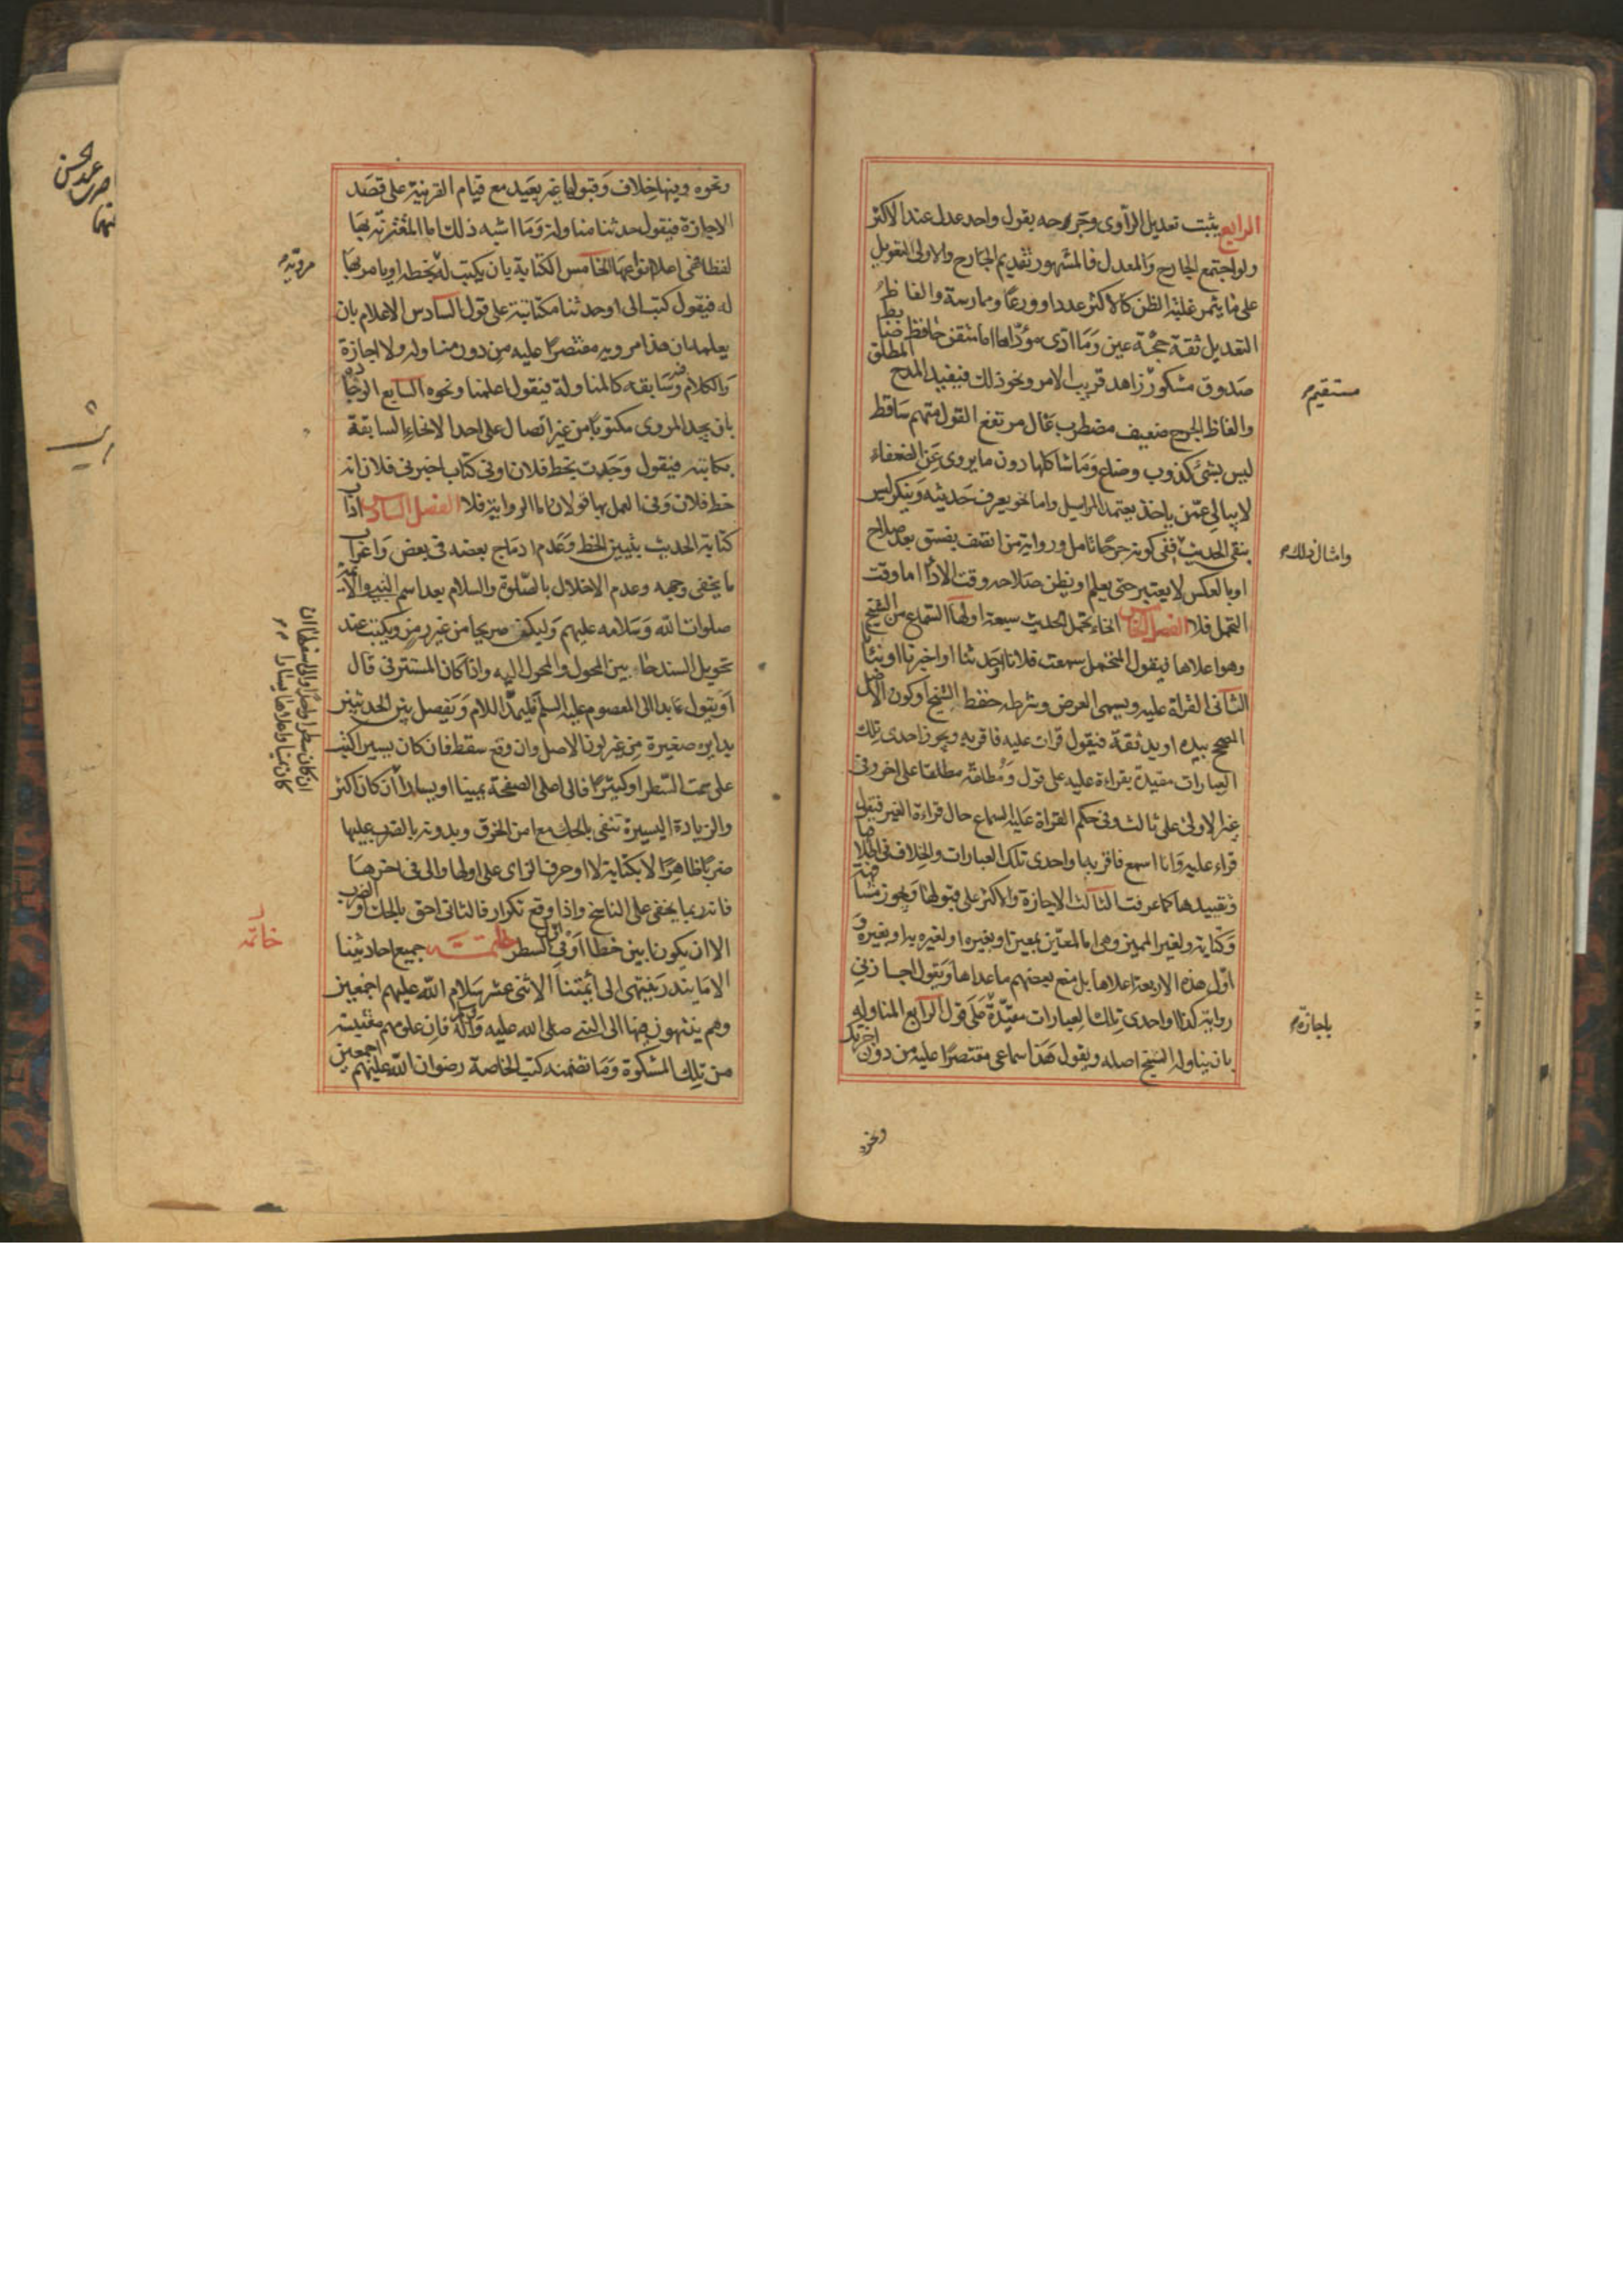 الرابع يثبت تعديل الراوى وجرحه بقول واحد عدل عند الاكثر
ولو اجتمع الجارح والمعدل فالمشهور تقديم الجارح والاولى التعويل
على ما يثمر غلبة الظن كالاكثر عددا وورعا وممارسة والفاظ
التعديل ثقة حجة عين وما ادى مؤداها اما متقن حافظ ضابط
صدوق مشكور زاهد قريب الامر ونحو ذلك فيفيد المدح المطلق
والفاظ الجرح ضعيف مضطرب غال مرتفع القول متهم ساقط
ليس بشئ كذوب وضاع وما شاكلها دون ما يروى عن الضعفاء
لا يبالى عمن ياخذ يعتمد المراسيل واما نحو يعرف حديثه وينكر ليس
بنقى الحديث ففى كونه جرحا تامل ورواية من اتصف بفسق بعد صلاح
او بالعكس لا يعتبر حتى يعلم او يظن صلاحه وقت الادا اما وقت
التحمل فلا الفصل الخامس انحاء تحمل الحديث سبعة اولها السماع من الشيخ
وهو اعلاها فيقول المتحمل سمعت فلانا او حدثنا او اخبرنا او نبئنا
الثانى القراة عليه ويسمى العرض وشرطه حفظ الشيخ او كون الاصل
المصحح بيده او يد ثقة فيقول قرات عليه فاقر به ويجوز احدى تلك
العبارات مقيدة بقراءة عليه على قول ومطلقة مطلقا على اخر وفى
غير الاولى على ثالث وفى حكم القراة عليه السماع حال قراءة الغير فيقول
قراء عليه وانا اسمع فاقر به او احدى تلك العبارات والخلاف فى اطلاقها
وتقييدها كما عرفت الثالث الاجازة والاكثر على قبولها ويجوز مشافهة
وكتابة ولغير المميز وهى اما لمعين بمعين او بغيره او لغيره به او بغيره و
اول هذه الاربعة اعلاها بل منع بعضهم ما عداها ويقول اجازنى
رواية كذا او احدى تلك العبارات مقيدة على قول الرابع المناولة
بان يناوله الشيخ اصله ويقول هذا سماعى مقتصرا عليه من دون اجزتك
ونحوه
مستقيم
وامثال ذلك
باجازة
ونحوه وفيها خلاف وقبولها غير بعيد مع قيام القرينة على قصد
الاجازة فيقول حدثنا مناولة وما اشبه ذلك اما المقترنة بها
لفظا فهى اعلا انواعها الخامس الكتابة بان يكتب له بخطه او يامر بها
له فيقول كتب الى او حدثنا مكاتبة على قول السادس الاعلام بان
يعلمه ان هذا مرويه مقتصرا عليه من دون مناولة ولا اجازة
والكلام فى وسابقه كالمناولة فيقول اعلمنا ونحوه السابع الوجادة
بان يجد المروى مكتوبا من غير اتصال على احد الانحاء السابقة
بكاتبه فيقول وجدت بخط فلان او فى كتاب اخبرنى فلان انه
خط فلان وفى العمل بها قولان اما الرواية فلا الفصل السادس اداب
كتابة الحديث بتبيين الخط وعدم ادماج بعضه فى بعض واعراب
ما يخفى وجهه وعدم الاخلال بالصلوة والسلام بعد اسم النبى والائمة
صلوات الله وسلامه عليهم وليكن صريحا من غير رمز ويكتب عند
تحويل السند حاء بين المحول والمحول اليه واذا كان المستتر فى قال
او يقول عايدا الى المعصوم عليه السلم فليمد اللام ويفصل بين الحديثين
بدايرة صغيرة من غير لون الاصل وان وقع سقط فان كان يسيرا كتب
على سمت السطر او كثيرا فالى اعلى الصفحة يمينا او يسارا ان كان اكثر
والزيادة اليسيرة تنفى بالحك مع امن الخرق وبدونه بالضرب عليها
ضربا ظاهرا لا بكتابة لا او حرف الزاى على اولها والى فى اخرها
فانه ربما يخفى على الناسخ واذا وقع تكرار فالثانى احق بالحك او الضرب
الا ان يكون ابين خطا او فى اول السطر خاتمة جميع احاديثنا
الا ما يندر ينتهى الى ائمتنا الاثنى عشر سلام الله عليهم اجمعين
وهم ينتهون فيها الى النبى صلى الله عليه وآله فان علومهم مقتبسة
من تلك المشكوة وما تضمنه كتب الخاصة رضوان الله عليهم اجمعين
مرويه
ان كان سطرا واحدا والى اسفلها ان
كان يمينا واعلاها يسارا
خاتمه